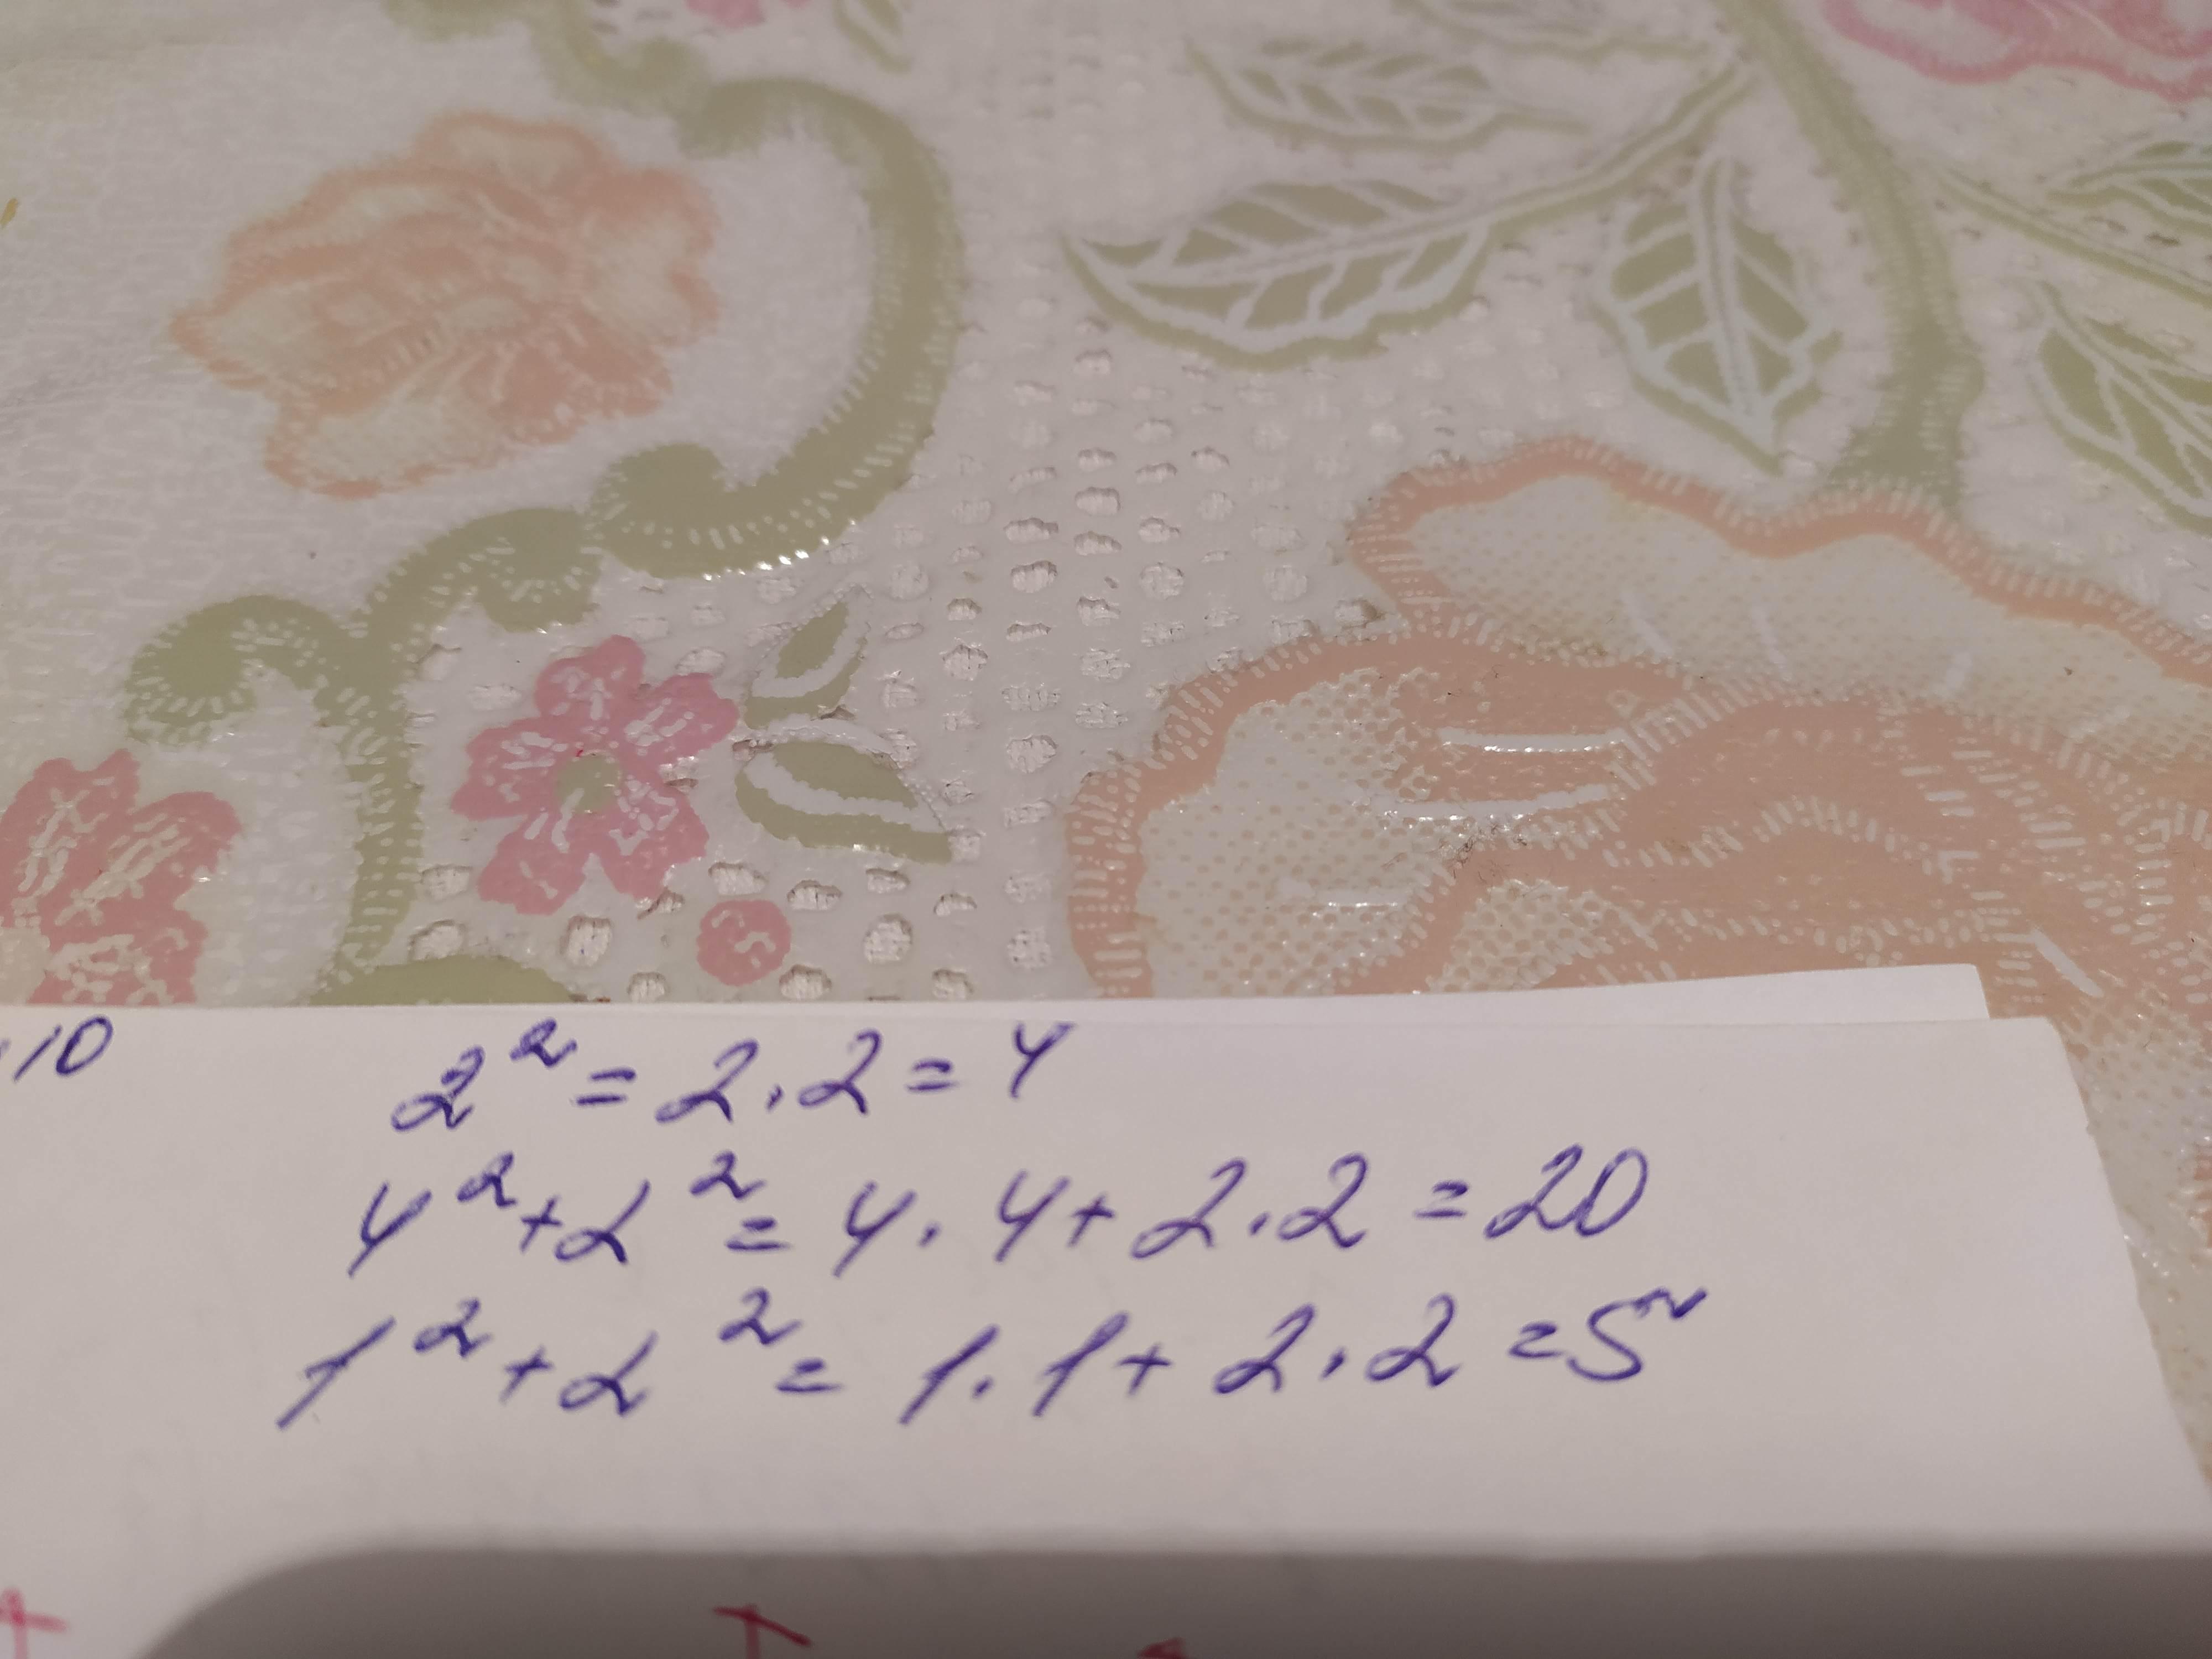 10
2² = 2 · 2 = 4
4² + 2² = 4 · 4 + 2 · 2 = 20
1² + 2² = 1 · 1 + 2 · 2 = 5